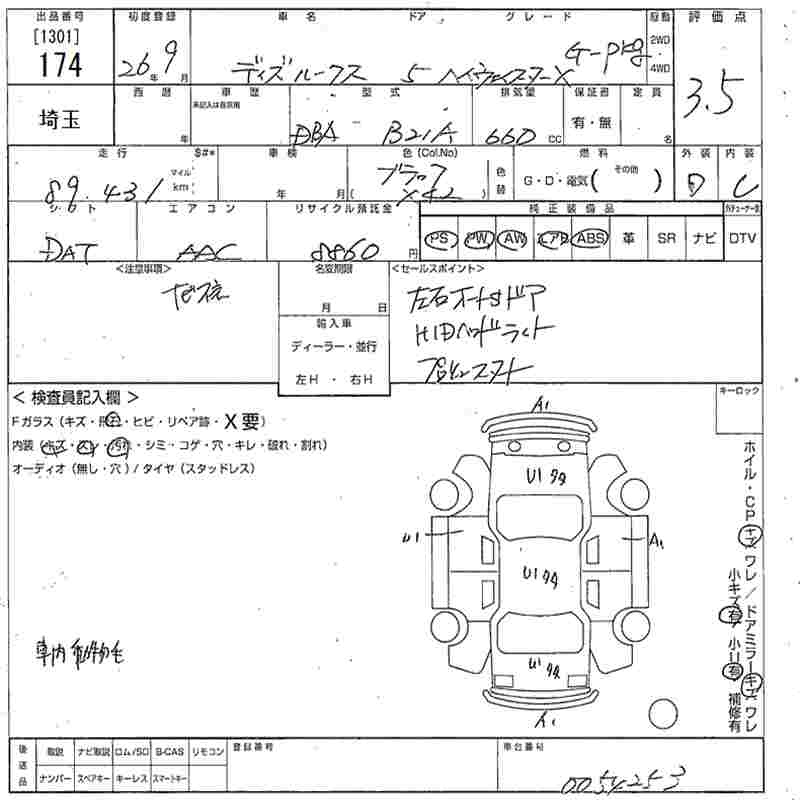 出品番号 初度登録 車名 ドア グレード 駆動 評価点
[1301]
174 26年 9月 ディズルークス 5 ハイウェイスターX G-pkg 2WD 4WD 3.5
埼玉 西暦 車歴 型式 排気量 保証書 定員
年 未記入は自家用 DBA B21A 660 CC 有・無 名
走行 $#* 車検 色(Col.No) 燃料 外装 内装
89,431 マイル km 年 月 ブラック ( X42 ) 色替 G・D・電気( その他 ) D C
シフト エアコン リサイクル預託金 純正装備品 地デチューナー付
DAT AAC 8860 円 PS PW AW エアB ABS 革 SR ナビ DTV
<注意事項> 名変期限 <セールスポイント>
月 日 左右オートSドア
輸入車 HIDヘッドライト
ディーラー・並行
左H ・ 右H
キーロック
< 検査員記入欄 >
Fガラス (キズ・飛石・ヒビ・リペア跡・X要)
内装 (キズ・スレ・汚れ・シミ・コゲ・穴・キレ・破れ・割れ)
オーディオ (無し・穴) / タイヤ (スタッドレス)
A1
U1 タタ
U1
A1
U1 タタ
U1 タタ
A1
ホイル・CPキズワレ/ドアミラーキズワレ
小キズ有 小U有 補修有
車内動物毛
後送品 取説 ナビ取説 ロム/SD B-CAS リモコン 登録番号 車台番号
ナンバー スペアキー キーレス スマートキー 0054253